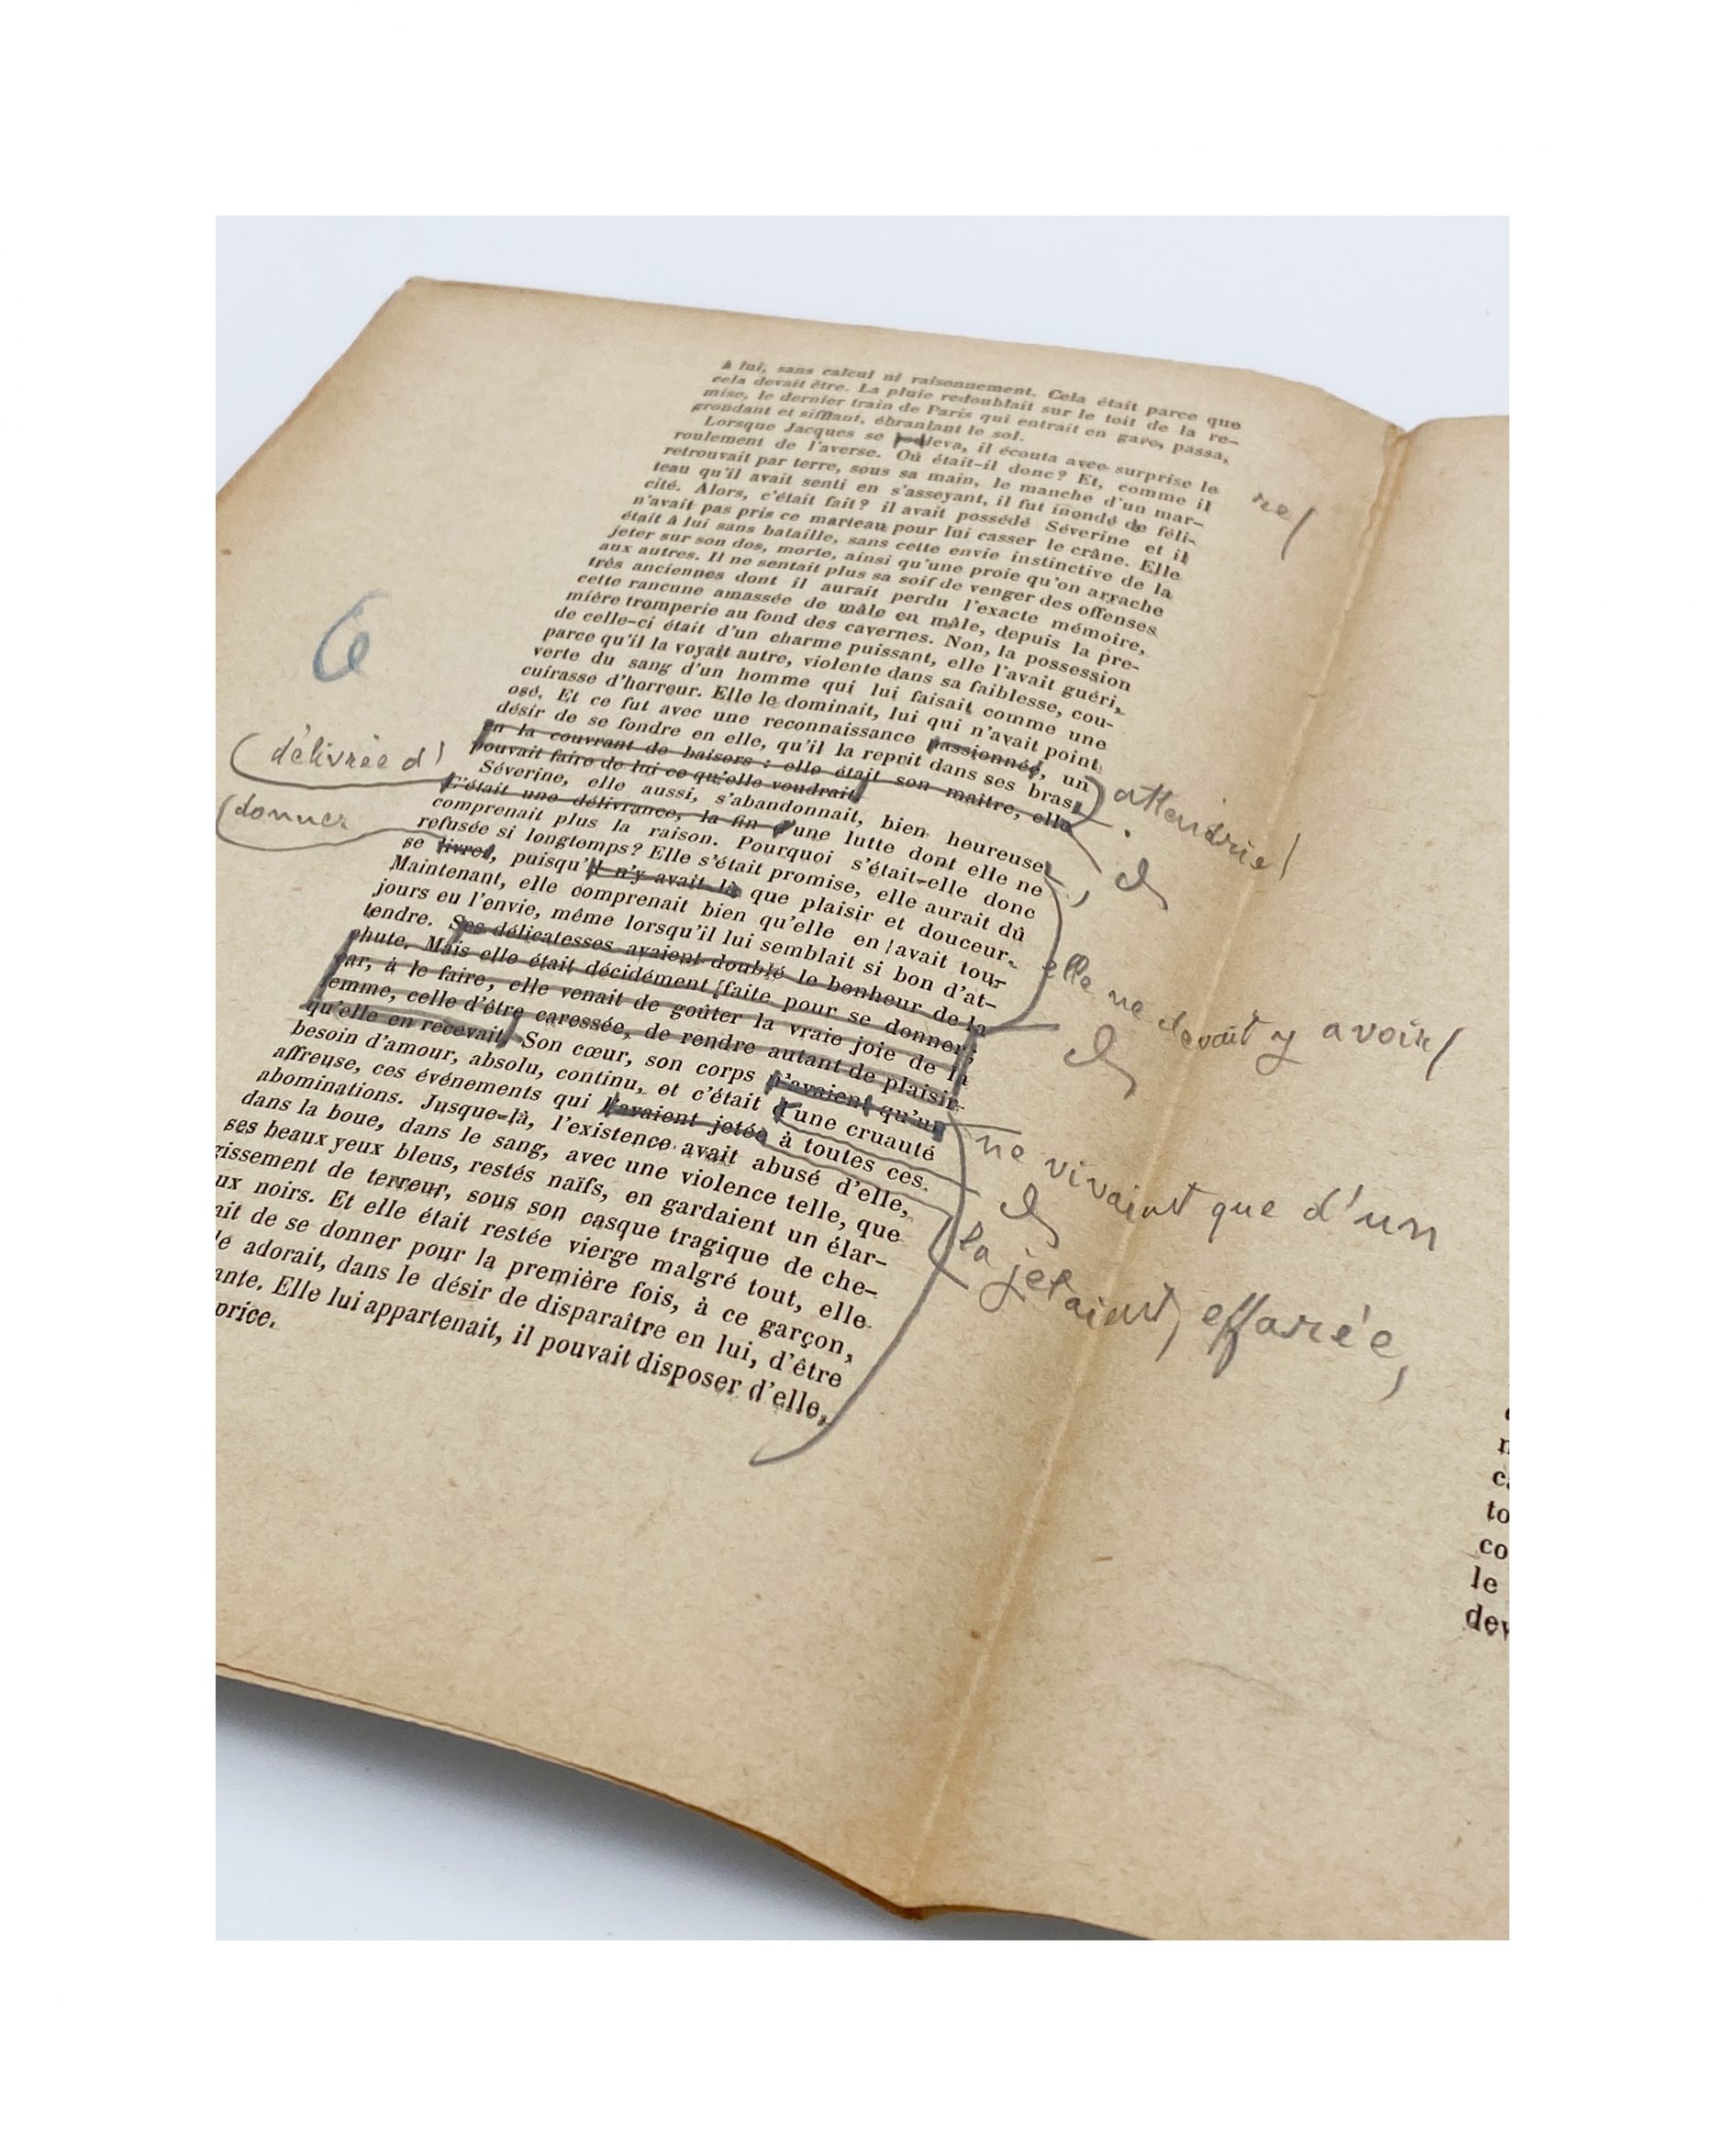 à lui, sans calcul ni raisonnement. Cela était parce que
cela devait être. La pluie redoublait sur le toit de la re-
mise, le dernier train de Paris qui entrait en gare, passa,
grondant et sifflant, ébranlant le sol.
Lorsque Jacques se leva, il écouta avec surprise le
roulement de l'averse. Où était-il donc? Et, comme il
re/
retrouvait par terre, sous sa main, le manche d'un mar-
teau qu'il avait senti en s'asseyant, il fut inondé de féli-
cité. Alors, c'était fait? il avait possédé Séverine et il
n'avait pas pris ce marteau pour lui casser le crâne. Elle
était à lui sans bataille, sans cette envie instinctive de la
jeter sur son dos, morte, ainsi qu'une proie qu'on arrache
aux autres. Il ne sentait plus sa soif de venger des offenses
très anciennes dont il aurait perdu l'exacte mémoire,
cette rancune amassée de mâle en mâle, depuis la pre-
mière tromperie au fond des cavernes. Non, la possession
de celle-ci était d'un charme puissant, elle l'avait guéri,
parce qu'il la voyait autre, violente dans sa faiblesse, cou-
verte du sang d'un homme qui lui faisait comme une
cuirasse d'horreur. Elle le dominait, lui qui n'avait point
osé. Et ce fut avec une reconnaissance passionnée, un
6
attendrie/
désir de se fondre en elle, qu'il la reprit dans ses bras,
en la couvrant de baisers : elle était son maître, elle
pouvait faire de lui ce qu'elle voudrait.
Séverine, elle aussi, s'abandonnait, bien heureuse,
délivrée d'
C'était une délivrance, la fin d'une lutte dont elle ne
comprenait plus la raison. Pourquoi s'était-elle donc
refusée si longtemps? Elle s'était promise, elle aurait dû
donner
se livrer, puisqu'il n'y avait là que plaisir et douceur.
elle ne devait y avoir/
Maintenant, elle comprenait bien qu'elle en avait tou-
jours eu l'envie, même lorsqu'il lui semblait si bon d'at-
tendre. Ses délicatesses avaient doublé le bonheur de la
chute. Mais elle était décidément faite pour se donner;
car, à le faire, elle venait de goûter la vraie joie de la
femme, celle d'être caressée, de rendre autant de plaisir
qu'elle en recevait. Son cœur, son corps n'avaient qu'un
ne vivaient que d'un
besoin d'amour, absolu, continu, et c'était d'une cruauté
affreuse, ces événements qui l'avaient jetée à toutes ces
la jetaient, effarée,
abominations. Jusque-là, l'existence avait abusé d'elle,
dans la boue, dans le sang, avec une violence telle, que
ses beaux yeux bleus, restés naïfs, en gardaient un élar-
gissement de terreur, sous son casque tragique de che-
ux noirs. Et elle était restée vierge malgré tout, elle
ait de se donner pour la première fois, à ce garçon,
le adorait, dans le désir de disparaître en lui, d'être
ante. Elle lui appartenait, il pouvait disposer d'elle,
price.
to
co
le
dev